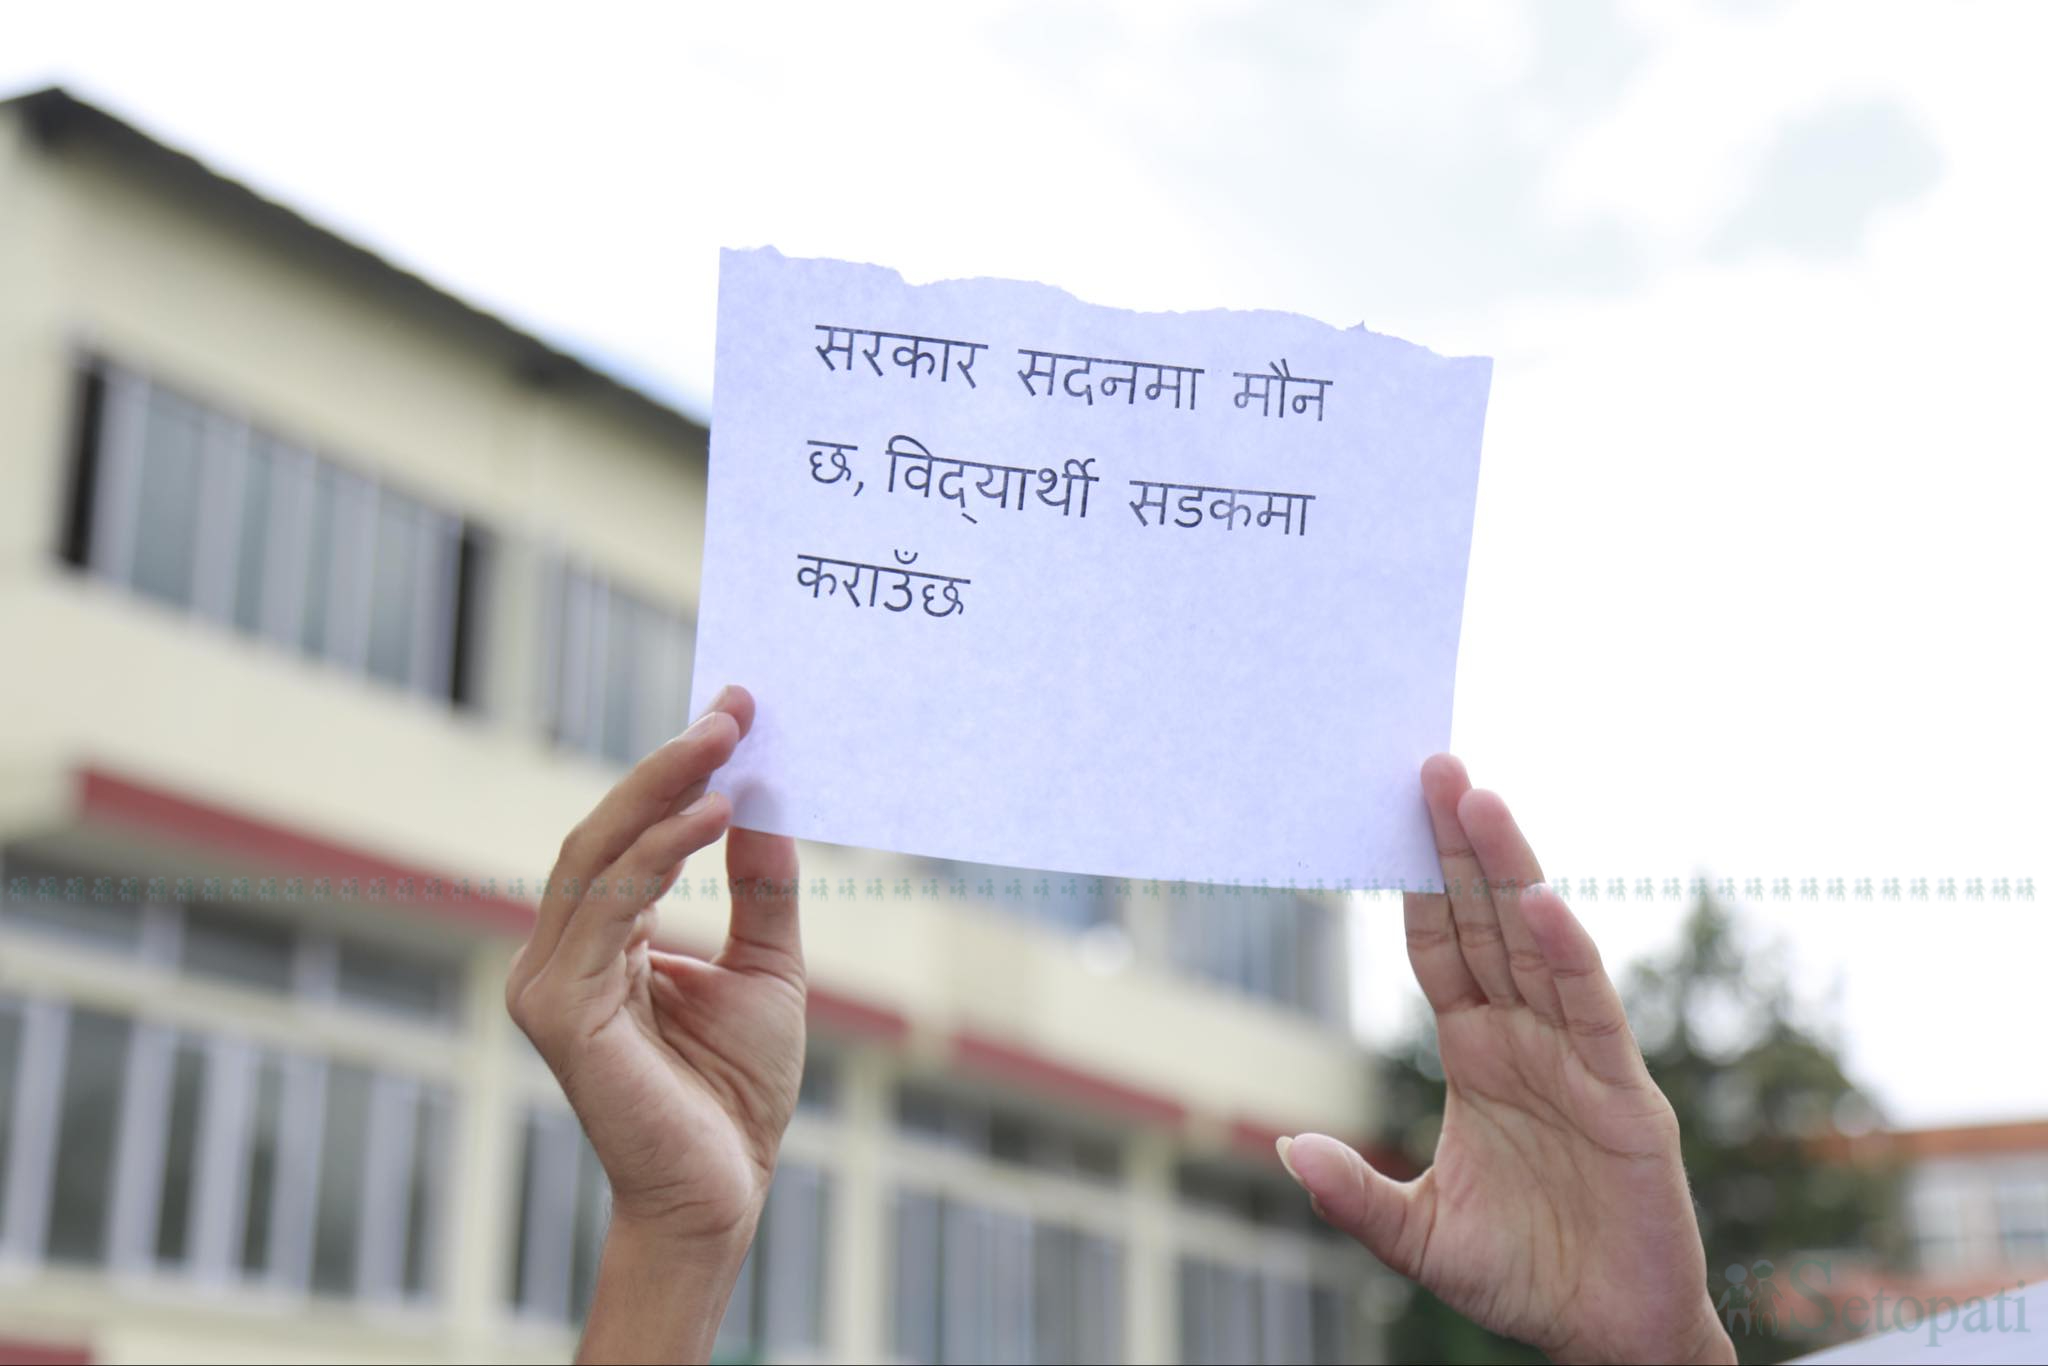 सरकार सदनमा मौन
छ, विद्‌यार्थी सडकमा
कराउँछ
Setopati